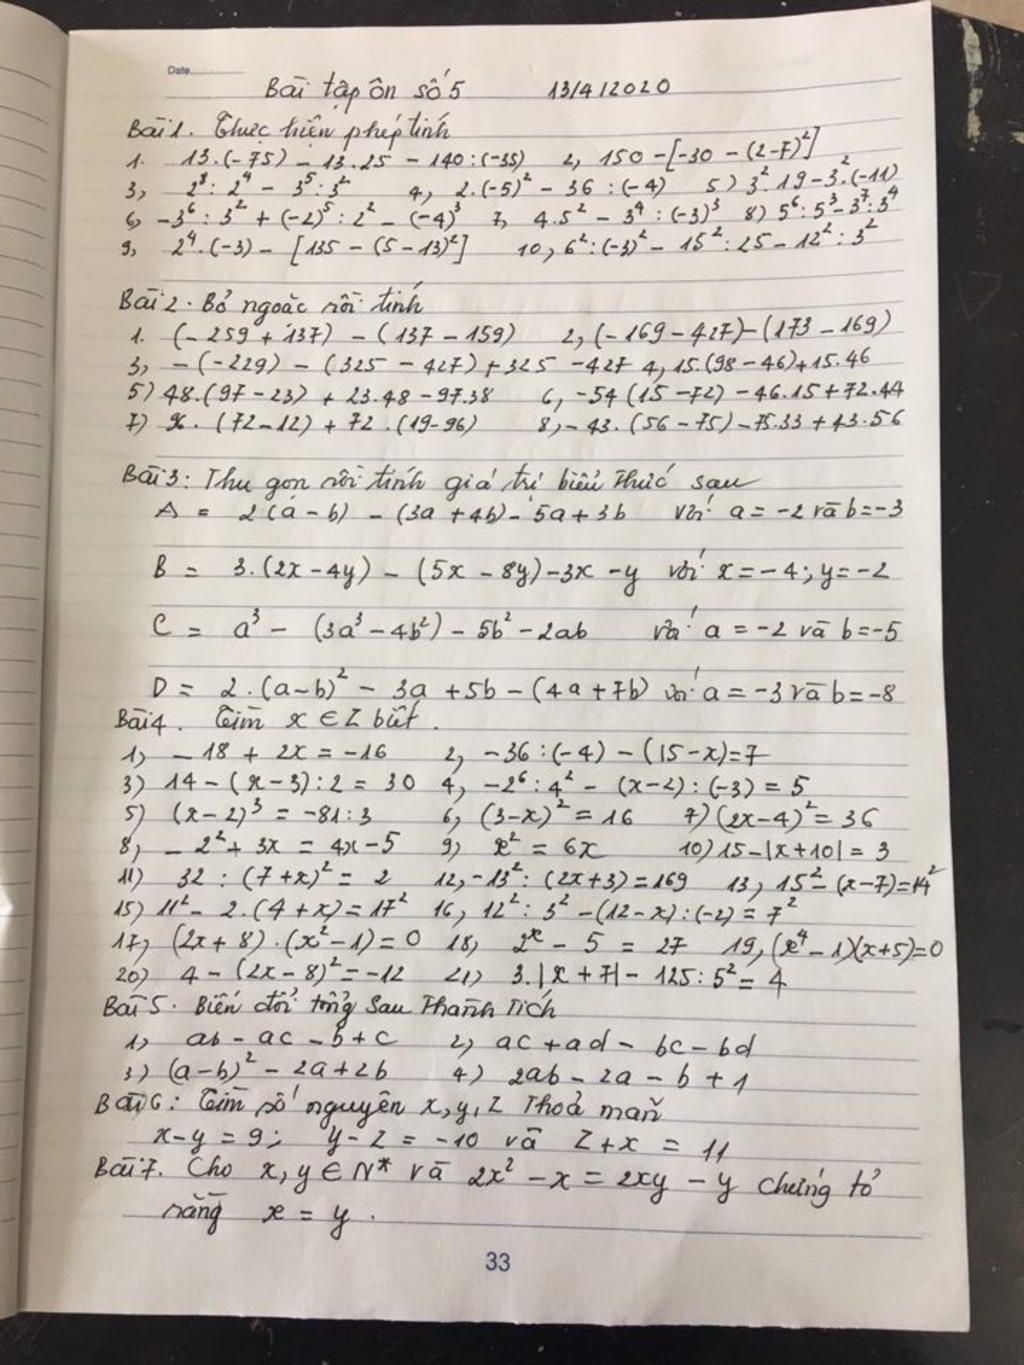 Date
Bài tập ôn số 5 13/4/2020
Bài 1. Thực hiện phép tính
1. 13.(-75) - 13.25 - 140:(-35) 2, 150 - [-30 - (2-7)²]
3, 2⁸: 2⁴ - 3⁵: 3² 4, 2.(-5)² - 36 : (-4) 5) 3². 19 - 3².(-11)
6, -3⁶: 3² + (-2)⁵: 2² - (-4)³ 7, 4.5² - 3⁴ : (-3)³ 8) 5⁶: 5³ - 3⁷: 3⁴
9, 2⁴.(-3) - [135 - (5-13)²] 10, 6²:(-3)² - 15²: 25 - 12²: 3²
Bài 2. Bỏ ngoặc rồi tính
1. (-259 + 137) - (137 - 159) 2, (-169 - 427) - (173 - 169)
3, -(-229) - (325 - 427) + 325 - 427 4, 15.(98 - 46) + 15.46
5) 48.(97 - 23) + 23.48 - 97.38 6, -54 (15 - 72) - 46.15 + 72.44
7) 96. (72 - 12) + 72.(19 - 96) 8, - 43. (56 - 75) - 75.33 + 43.56
Bài 3: Thu gọn rồi tính giá trị biểu thức sau
A = 2(a - b) - (3a + 4b) - 5a + 3b với a = -2 và b = -3
B = 3.(2x - 4y) - (5x - 8y) - 3x - y với x = -4; y = -2
C = a³ - (3a³ - 4b²) - 5b² - 2ab với a = -2 và b = -5
D = 2.(a-b)² - 3a + 5b - (4a + 7b) với a = -3 và b = -8
Bài 4. Tìm x ∈ Z biết.
1) - 18 + 2x = -16 2, -36 : (-4) - (15 - x) = 7
3) 14 - (x - 3) : 2 = 30 4, -2⁶ : 4² - (x-2) : (-3) = 5
5) (x - 2)³ = -81 : 3 6, (3-x)² = 16 7) (2x-4)² = 36
8, - 2² + 3x = 4x - 5 9) x² = 6x 10) 15 - |x + 10| = 3
11) 32 : (7+x)² = 2 12, -13² : (2x+3) = 169 13, 15² - (x-7) = 14²
15) 11² - 2.(4 + x) = 17² 16, 12² : 3² - (12 - x) : (-2) = 7²
17, (2x + 8).(x² - 1) = 0 18, 2ˣ - 5 = 27 19, (x⁴ - 1)(x+5) = 0
20) 4 - (2x - 8)² = -12 21) 3.|x + 7| - 125 : 5² = 4
Bài 5. Biến đổi tổng sau thành tích
1) ab - ac - b + c 2) ac + ad - bc - bd
3) (a-b)² - 2a + 2b 4) 2ab - 2a - b + 1
Bài 6: Tìm số nguyên x, y, z thoả mãn
x-y = 9; y-z = -10 và z+x = 11
Bài 7. Cho x, y ∈ N* và 2x² - x = 2xy - y chứng tỏ
rằng x = y.
33